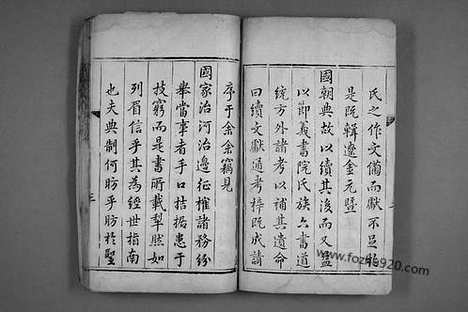 氏之作文備而獻不足於
是既輯遼金元暨
國朝典故以續其後而又益
以節義書院氏族六書道
統方外諸考以補其遺命
曰續文獻通考梓既成請
序于余余竊見
國家治河治邊征榷諸務紛
舉當事者手口拮据患于
技窮而是書所載犁然如
列眉信乎其為經世指南
也夫典制何昉乎昉於聖
三
www.fozhu920.com